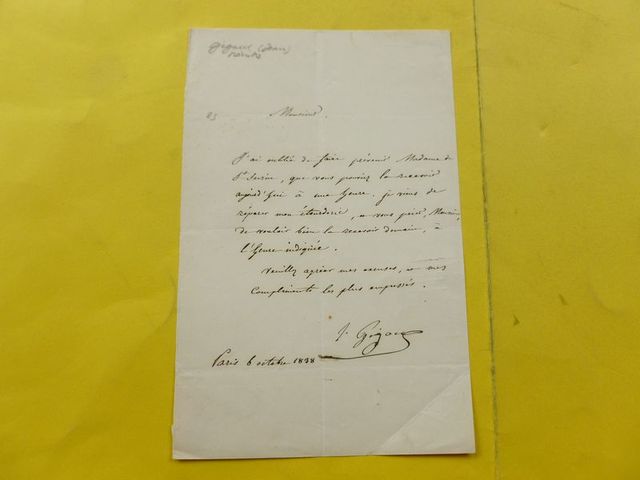 Gigoux (Jean)
peintre
23
Monsieur,
J'ai oublié de faire prévenir Madame de
St Surin, que vous pouviez la recevoir
aujourd'hui à une heure. je viens de
réparer mon étourderie, et vous prier, Monsieur,
de vouloir bien la recevoir demain, à
l'heure indiquée.
Veuillez agréer mes excuses, et mes
compliments les plus empressés.
J. Gigoux
Paris 6 octobre 1838